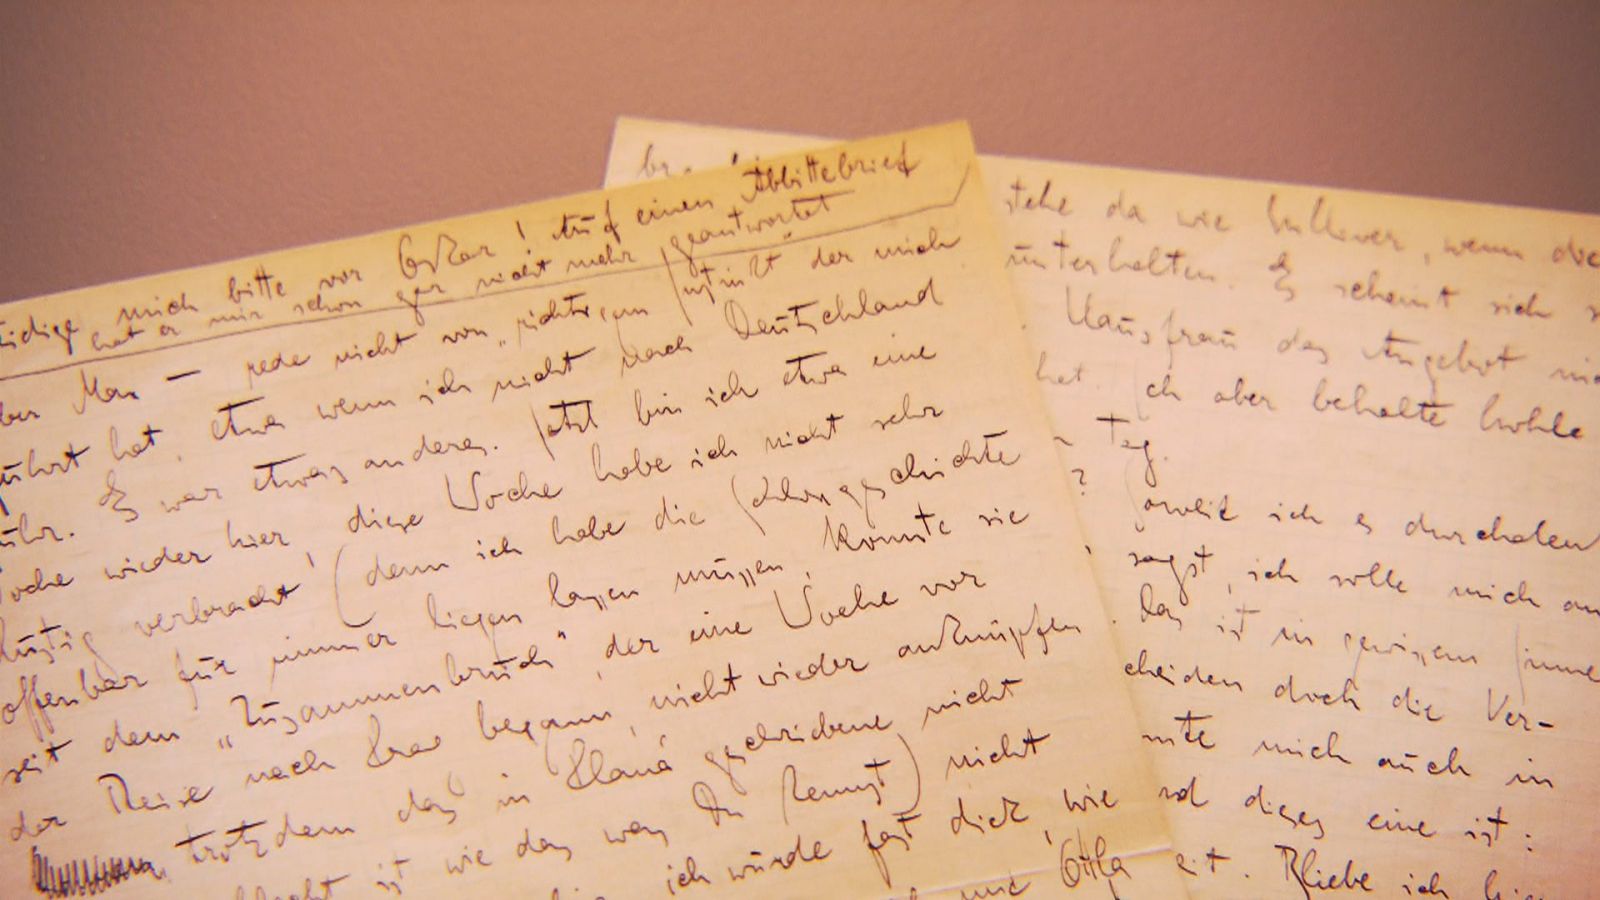 mich bitte vor Oskar! Auf einen Abbittebrief
hat er mir schon gar nicht mehr geantwortet
Max — rede nicht von „richtigem Instinkt" der mich
hat, etwa wenn ich nicht nach Deutschland
Es war etwas anderes. Jetzt bin ich etwa eine
wieder hier, diese Woche habe ich nicht sehr
lustig verbracht (denn ich habe die Schlossgeschichte
offenbar für immer liegen lassen müssen, konnte sie
seit dem „Zusammenbruch", der eine Woche vor
der Reise nach Prag begann, nicht wieder anknüpfen
trotzdem das in Planá geschriebene nicht
ist wie das was Du kennst) nicht
ich würde fast dick, wie
stehe da wie Gulliver, wenn die
unterhalten. Es scheint sich
Hausfrau das Angebot
hat. Ich aber behalte hohle
Tag.
? Soweit ich es
sagst, ich solle mich
Das ist in gewissem Sinne
doch die Ver-
mich auch in
dieses eine ist:
Ottla ist. Bliebe ich